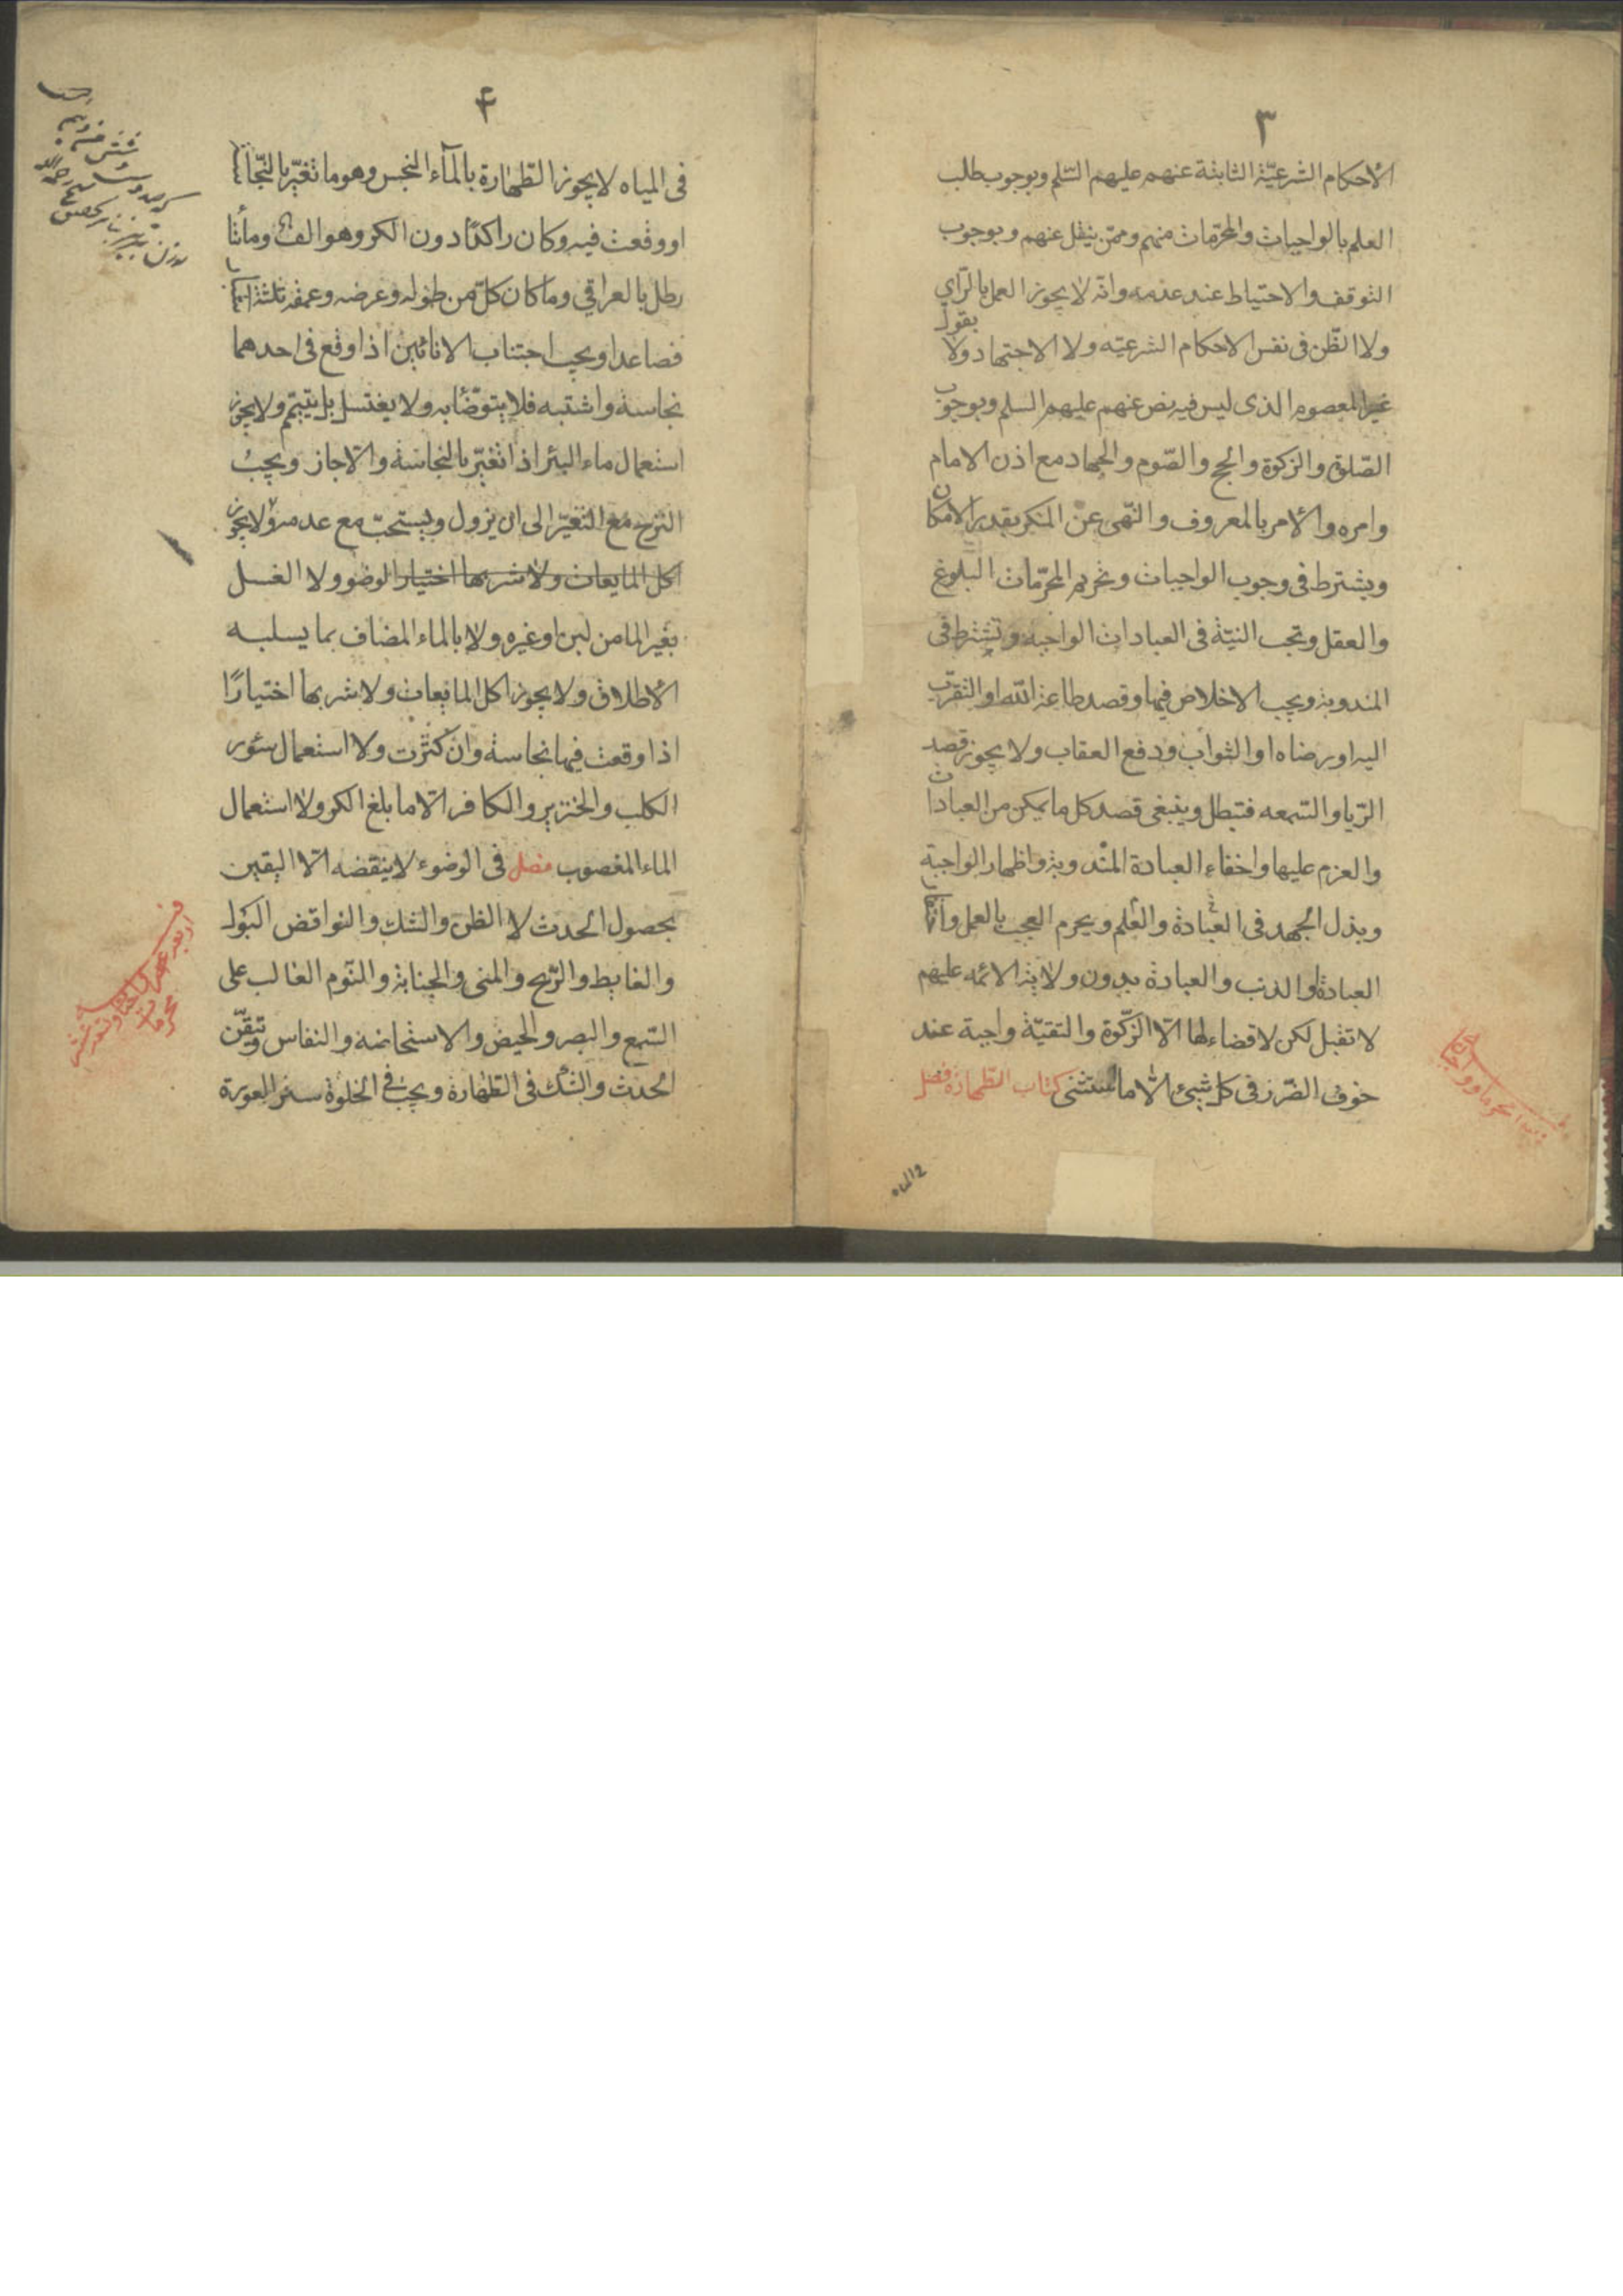 ٣
الأحكام الشرعيّة الثابتة عنهم عليهم السّلم وبوجوب طلب
العلم بالواجبات والمحرّمات منهم وممّن ينقل عنهم وبوجوب
التوقف والاحتياط عند عدمه وانّه لا يجوز العمل بالرّاي
ولا الظّن فى نفس الاحكام الشرعيّه ولا الاجتهاد ولا بقول
غير المعصوم الذى ليس فيه نص عنهم عليهم السلم وبوجوب
الصّلوة والزكوة والحج والصّوم والجهاد مع اذن الامام
وامره والأمر بالمعروف والنّهى عن المنكر بقدر الامكان
ويشترط فى وجوب الواجبات وتحريم المحرّمات البلوغ
والعقل وتجب النيّة فى العبادات الواجبه وتشترط فى
المندوبة ويجب الاخلاص فيها وقصد طاعة الله او التقرّب
اليه او رضاه او الثواب ودفع العقاب ولا يجوز قصد
الرّيا والسّمعه فتبطل وينبغى قصد كل ما يمكن من العبادات
والعزم عليها واخفاء العبادة المندوبة واظهار الواجبة
وبذل الجهد فى العبادة والعلم ويحرم العجب بالعمل و
العبادة والدنب والعبادة بدون ولاية الائمه عليهم
لا تقبل لكن لا قضاء لها الّا الزّكوة والتقيّة واجبة عند
خوف الضّرر فى كل شيئ الّا ما استثنى كتاب الطّهارة فصل
فى المياه
۴
فى المياه لا يجوز الطّهارة بالمآء النجس وهو ما تغيّر بالنّجاسة
او وقعت فيه وكان راكدًا دون الكر وهو الف ومأتا
رطل بالعراقي وما كان كلّ من طوله وعرضه وعمقه ثلثة اشبار
فصاعدا ويجب اجتناب الانائين اذا وقع فى احدهما
نجاسة واشتبه فلا يتوضّأ به ولا يغتسل بل يتيمّم ولا يجوز
استعمال ماء البئر اذا تغيّر بالنجاسة والّا جاز ويجب
النزح مع التغيّر الى ان يزول ويستحبّ مع عدمه ولا يجوز
اكل المايعات ولا شربها اختيار الوضو ولا الغسل
بغير الما من لبن او غيره ولا بالماء المضاف بما يسلبه
الأطلاق ولا يجوز اكل المايعات ولا شربها اختيارًا
اذا وقعت فيها نجاسة وان كثرت ولا استعمال سئور
الكلب والخنزير والكافر الّا ما بلغ الكر ولا استعمال
الماء المغصوب فصل فى الوضوء لا ينقضه الّا اليقين
بحصول الحدث لا الظن والشك والنواقض البول
والغايط والرّيح والمنى والجنابة والنّوم الغالب على
السّمع والبصر والحيض والاستحاضه والنفاس وتيقّن
الحدث والشك فى الطهارة ويجب فى الخلوة ستر العورة